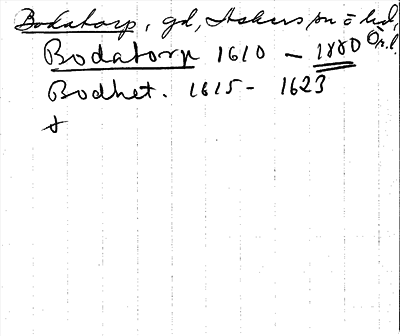 Bodatorp, gd, Askers sn o hd, Ör. l.
Bodatorp 1610 – 1880
Bodhet. 1615 – 1623